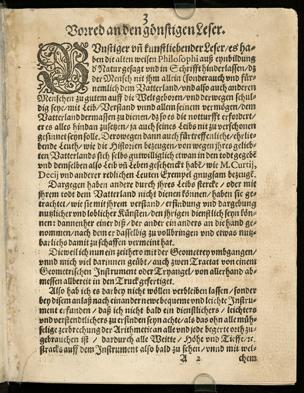 3
Vorred an den gönstigen Leser.
GVnstiger vñ kunstliebender Leser/ es ha-
ben die alten weisen Philosophi auß eynbildung
d' Natur gesagt vnd in Schrifft hinderlassen/ dz
der Mensch nit jhm allein (sonder auch vnd für-
nemlich dem Vatterland/ vnd also auch anderen
Menschen zu gutem auff die Welt geboren/ vnd derwegen schul-
dig sey/ mit Leib/ Verstand vnnd allem seinem vermögen/ dem
Vatterland dermassen zu dienen/ dz so es die notturfft erforder-
te/ es alles hindan zusetzen/ ja auch seines Leibs nit zu verschonen
gesinnet seyn solle. Derowegen dann auch fürtreffenliche/ ehrlie-
bende Leuth/ wie die Historien bezeugen/ von wegen jhres gelieb-
ten Vatterlands sich selbs gutwilligklich etwan in den tod gegebē
vnd demselben also Leib vñ Leben geschenckt habē/ wie M. Curtij,
Decij vnd anderer redlichen Leuten Exempel gnugsam bezeugt.
Dargegen haben andere durch jhres Leibs stercke/ oder mit
jhrem tod dem Vatterland nicht dienen können/ haben sie ge-
trachtet/ wie sie mit jhrem verstand/ erfindung vnd dargebung
nutzlicher vnd loblicher Künsten/ den jhrigen dienstlich seyn kön-
nen: dannenher einer diß/ der ander ein anders an die hand ge-
nommen/ nach dem er dasselbig zu vollbringen vnd etwas nutz-
barlichs damit zu schaffen vermeint hat.
Dieweil ich nun ein zeithero mit der Geometry vmbgangen/
vnnd mich viel darinnen geübt/ auch zwen Tractat von einem
Geometrischen Instrument oder Tryangel/ von allerhand ab-
messen allbereit in den Truck gefertiget.
Also hab ich es darbey nicht wöllen verbleiben lassen/ sonder
bey disem anlaß nach einander newe bequeme vnd leichte Instru-
ment erfunden/ daß ich nicht bald ein dienstlichers/ leichters
vnd verstendtlichers zu erfinden seyn achte/ als das ohn alle müh-
selige zerbrechung der Arithmetic an alle vnd jede begerte orth zu-
gebrauchen ist/ dardurch alle Weitte/ Höhe vnd Tieffe/ st-
stracks auff dem Instrument also bald zu sehen/ vnnd mit wel-
A 2 chem